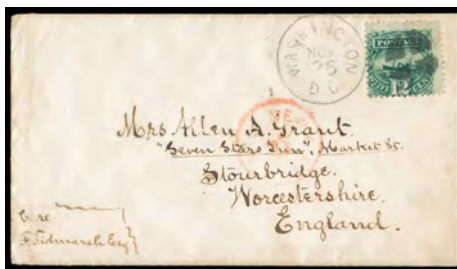 WASHINGTON
NOV
25
D C
POSTAGE
12
Mrs Allen A. Grant.
"Seven Stars Inn", Market St.
Stourbridge.
Worcestershire.
England.
Care
F. Tidmarsh Esq